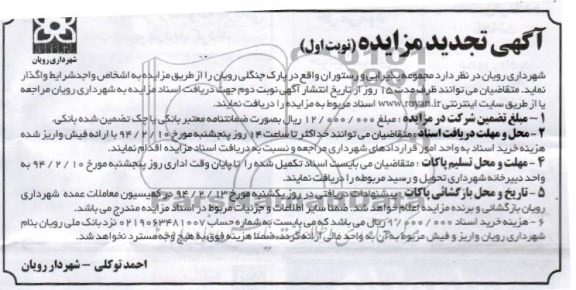 آگهی تجدید مزایده (نوبت اول)
شهرداری رویان
شهرداری رویان در نظر دارد مجموعه پذیرایی و رستوران واقع در پارک جنگلی رویان را از طریق مزایده به اشخاص واجد شرایط واگذار
نماید. متقاضیان می توانند ظرف مدت ۱۵ روز از تاریخ انتشار آگهی نوبت دوم جهت دریافت اسناد مزایده به شهرداری رویان مراجعه
یا از طریق سایت اینترنتی www.royan.ir اسناد مربوط به مزایده را دریافت نمایند.
۱ – مبلغ تضمین شرکت در مزایده : مبلغ ۱۲/۰۰۰/۰۰۰ ریال بصورت ضمانتنامه معتبر بانکی یا چک تضمین شده بانکی.
۲ – محل و مهلت دریافت اسناد : متقاضیان می توانند حداکثر تا ساعت ۱۴ روز پنجشنبه مورخ ۹۴/۲/۱۰ با ارائه فیش واریز شده
هزینه خرید اسناد به واحد امور قراردادهای شهرداری مراجعه و نسبت به دریافت اسناد مزایده اقدام نمایند.
۴ – مهلت و محل تسلیم پاکات : متقاضیان می بایست اسناد تکمیل شده را تا پایان وقت اداری روز پنجشنبه مورخ ۹۴/۲/۱۰ به
واحد دبیرخانه شهرداری تحویل و رسید مربوطه را دریافت نمایند.
۵ – تاریخ و محل بازگشائی پاکات : پیشنهادات دریافتی در روز یکشنبه مورخ ۹۴/۲/۱۳ در کمیسیون معاملات عمده شهرداری
رویان بازگشائی و برنده مزایده اعلام خواهد شد. ضمنا سایر اطلاعات و جزئیات مربوط در اسناد مزایده مندرج می باشد.
۶ – هزینه خرید اسناد ۱/۰۰۰/۰۰۰ ریال می باشد که می بایست به شماره حساب ۰۲۱۹۰۶۳۴۸۱۰۰۷ نزد بانک ملی رویان بنام
شهرداری رویان واریز و فیش مربوط به آن به واحد مالی ارائه گردد. ضمنا هزینه فوق به هیچ وجه مسترد نخواهد شد.
احمد توکلی – شهردار رویان